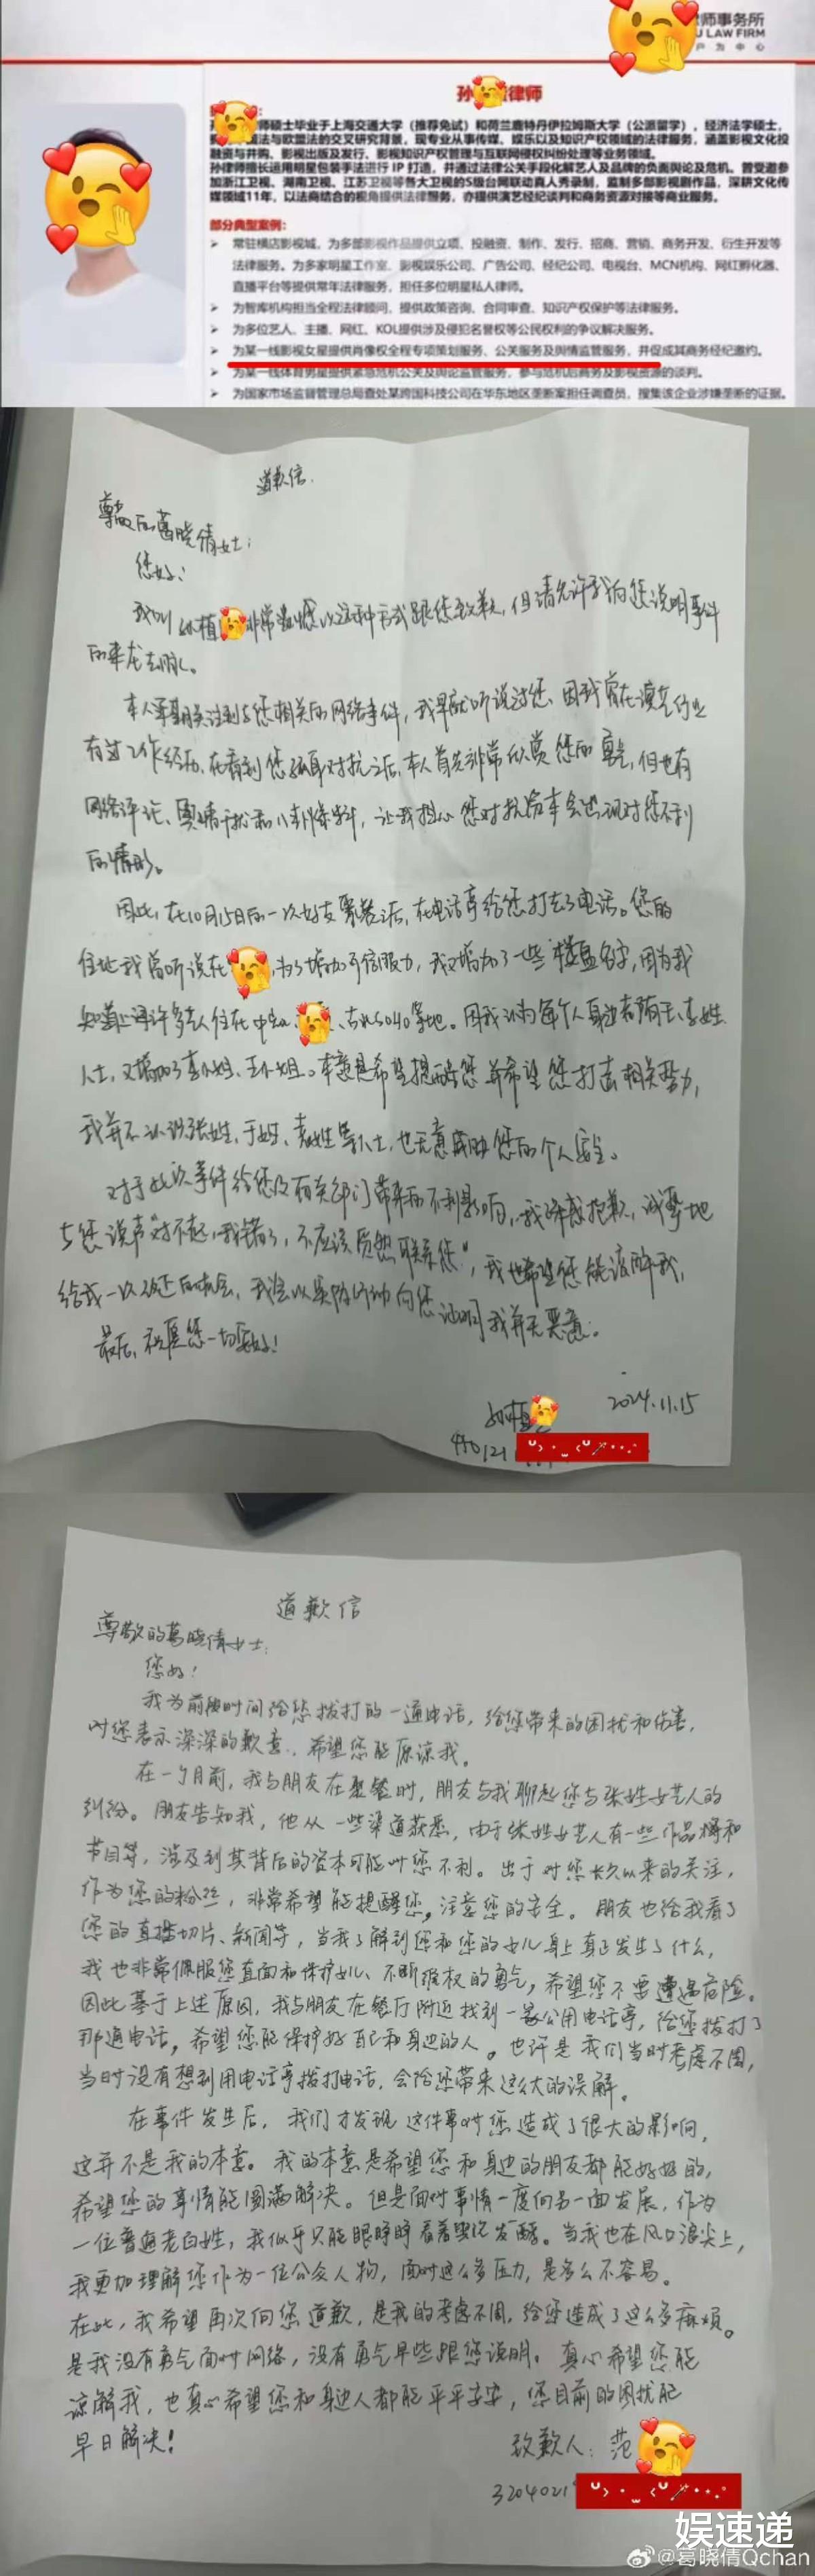 师事务所
U LAW FIRM
户 为 中 心
孙 律师
师硕士毕业于上海交通大学（推荐免试）和荷兰鹿特丹伊拉姆斯大学（公派留学），经济法学硕士，
法与欧盟法的交叉研究背景，现专业从事传媒、娱乐以及知识产权领域的法律服务，涵盖影视文化投
融资与并购、影视出版及发行、影视知识产权管理与互联网侵权纠纷处理等业务领域。
孙律师擅长运用明星包装手法进行 IP 打造，并通过法律公关手段化解艺人及品牌的负面舆论及危机。曾受邀参
加浙江卫视、湖南卫视、江苏卫视等各大卫视的S级台网联动真人秀录制，监制多部影视剧作品，深耕文化传
媒领域11年，以法商结合的视角提供法律服务，亦提供演艺经纪谈判和商务资源对接等商业服务。
部分典型案例：
➢ 常驻横店影视城，为多部影视作品提供立项、投融资、制作、发行、招商、营销、商务开发、衍生开发等
法律服务。为多家明星工作室、影视娱乐公司、广告公司、经纪公司、电视台、MCN机构、网红孵化器、
直播平台等提供常年法律服务，担任多位明星私人律师。
➢ 为智库机构担当全程法律顾问，提供政策咨询、合同审查、知识产权保护等法律服务。
➢ 为多位艺人、主播、网红、KOL提供涉及侵犯名誉权等公民权利的争议解决服务。
➢ 为某一线影视女星提供肖像权全程专项策划服务、公关服务及舆情监管服务，并促成其商务经纪邀约。
➢ 为某一线体育男星提供紧急危机公关及舆论监管服务，参与危机后商务及影视资源的谈判。
➢ 为国家市场监督管理总局查处某跨国科技公司在华东地区垄断案担任调查员，搜集该企业涉嫌垄断的证据。
道歉信.
尊敬的葛晓倩女士：
您好！
我叫孙植 非常遗憾以这种方式跟您致歉，但请允许我向您说明事件
的来龙去脉。
本人军期关注到与您相关的网络事件，我早就听说过您、因我曾在演艺行业
有过工作经历。在看到您孤身对抗之后，本人首先非常欣赏您的勇气，但也有
网络评论、舆情干扰和八卦爆料，让我担心您对抗资本会出现对您不利
的情形。
因此，在10月15日的一次好友聚餐后，在电话亭给您打去了电话。您的
住址我曾听说在 ，为了增加可信服力，我又增加了一些楼盘名字，因为我
知道上海许多艺人住在中 、 5040等地。因我认为每个人身边都有王、李姓
人士，又增加了李小姐、王小姐。本意是希望提醒您并希望您打击相关势力，
我并不认识张姓、于姓、袁姓等人士，也无意威胁您的个人安全。
对于此次事件给您及有关部门带来的不利影响，我深感抱歉，诚挚地
与您说声“对不起，我错了，不应该贸然联系您”，我也希望您能谅解我，
给我一次改正的机会，我会以实际行动向您证明我并无恶意。
最后，祝愿您一切安好！
孙植 2024.11.15
道歉信
尊敬的葛晓倩女士：
您好！
我为前段时间给您拨打的一通电话，给您带来的困扰和伤害，
对您表示深深的歉意，希望您能原谅我。
在一个月前，我与朋友在聚餐时，朋友与我聊起您与张姓女艺人的
纠纷。朋友告知我，他从一些渠道获悉，由于张姓女艺人有一些作品、播和
节目等，涉及到其背后的资本可能对您不利。出于对您长久以来的关注，
作为您的粉丝，非常希望能提醒您，注意您的安全。朋友也给我看了
您的直播切片、新闻等，当我了解到您和您的女儿身上真正发生了什么，
我也非常佩服您直面和保护女儿、不断维权的勇气，希望您不要遭遇危险。
因此基于上述原因，我与朋友在餐厅附近找到一家公用电话亭，给您拨打了
那通电话，希望您能保护好自己和身边的人。也许是我们当时考虑不周，
当时没有想到用电话亭拨打电话，会给您带来这么大的误解。
在事件发生后，我们才发现这件事对您造成了很大的影响，
这并不是我的本意。我的本意是希望您和身边的朋友都能好好的，
希望您的事情能圆满解决。但是面对事情一度向另一面发展，作为
一位普通老百姓，我似乎只能眼睁睁看着舆论发酵。当我也在风口浪尖上，
我更加理解您作为一位公众人物，面对这么多压力，是多么不容易。
在此，我希望再次向您道歉，是我的考虑不周，给您造成了这么多麻烦。
是我没有勇气面对网络，没有勇气早些跟您说明。真心希望您能
谅解我，也真心希望您和身边人都能平平安安，您目前的困扰能
早日解决！
致歉人：范
3204021
娱速递
@葛晓倩Qchan